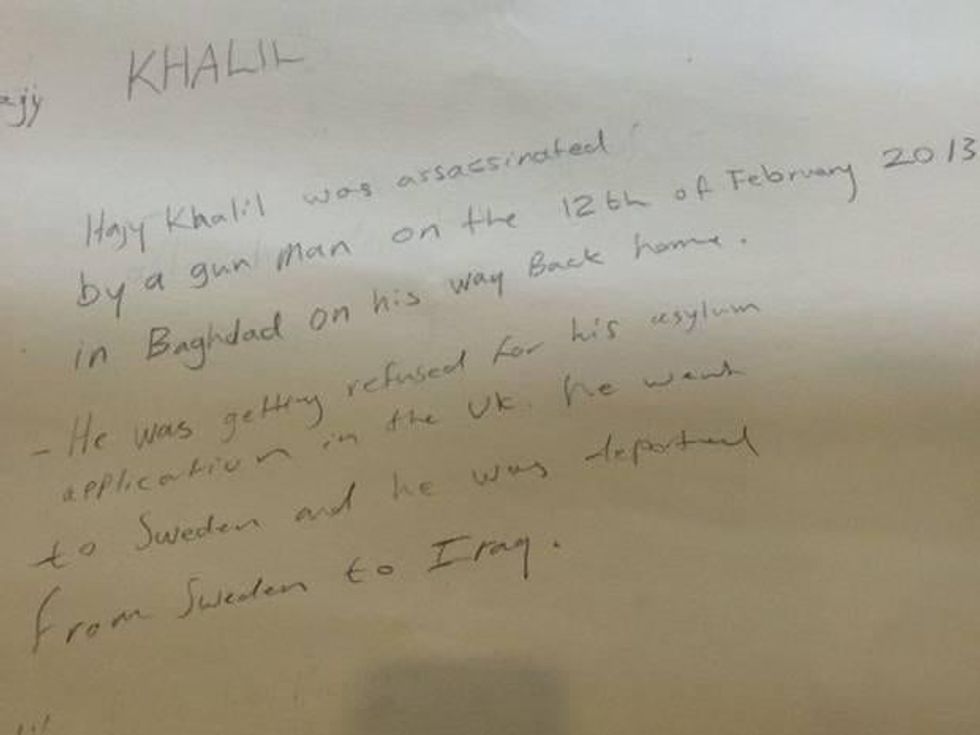 KHALIL
Hajy Khalil was assassinated
by a gun man on the 12th of February 2013
in Baghdad on his way Back home.
- He was getting refused for his asylum
application in the UK. he went
to Sweden and he was deported
from Sweden to Iraq.